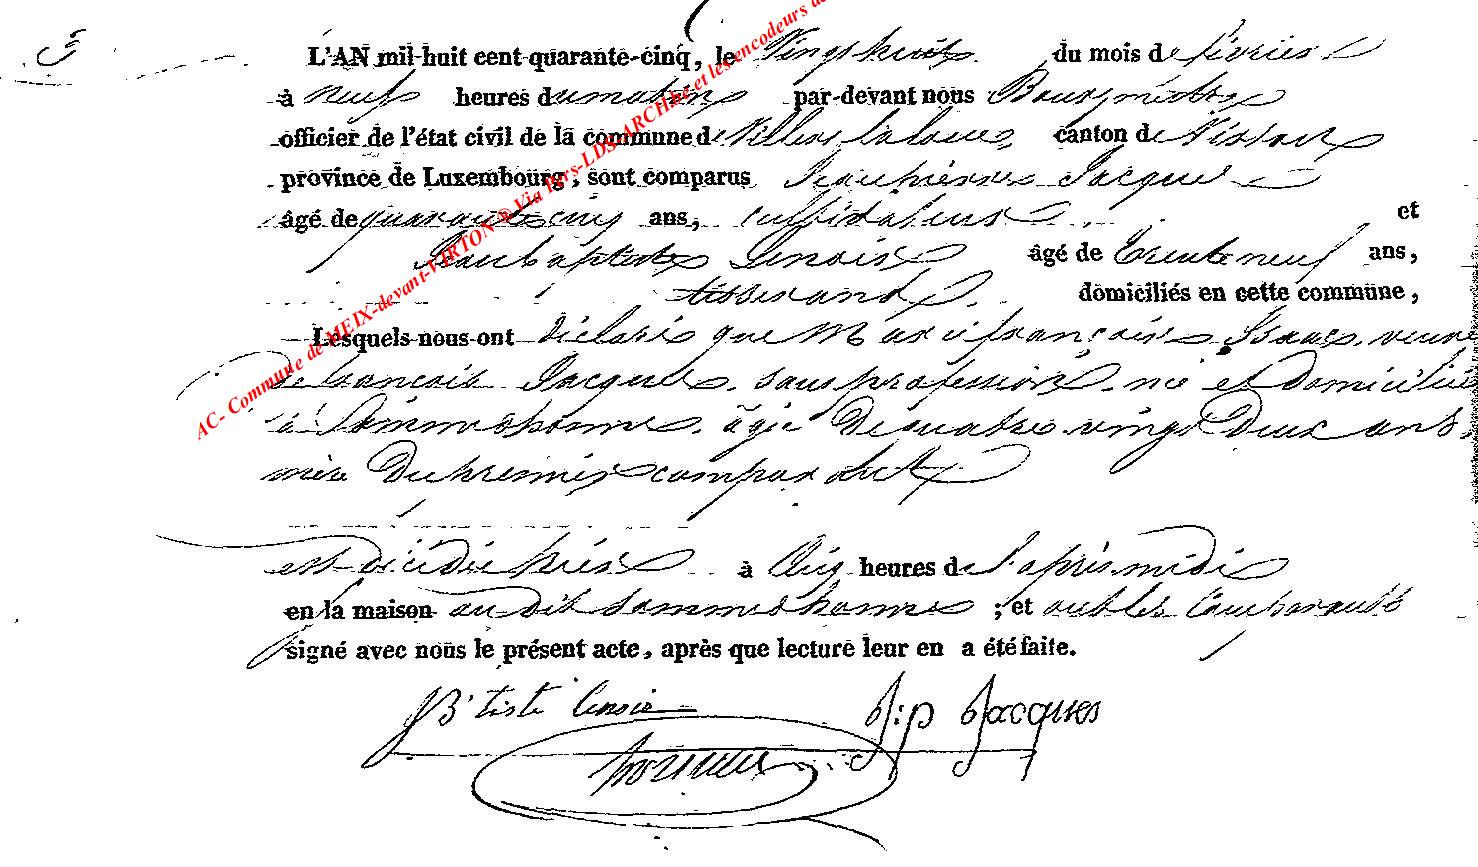 5
L'AN mil-huit cent-quarante-cinq, le Vingt huit du mois de février
à neuf heures du matin par-devant nous Bourgmestre
officier de l'état civil de la commune de Villers la loue, canton de Virton
province de Luxembourg, sont comparus Jean pierre Jacques
âgé de quarante cinq ans, cultivateur et
Jean baptiste Lenoir âgé de trente neuf ans,
tisserand domiciliés en cette commune,
Lesquels nous ont déclaré que Marie françoise Isaac, veuve
de françois Jacques, sans profession, née et domiciliée
à Sommethonne, âgée de quatre vingt deux ans,
mère du premier comparant
est décédée hier à cinq heures de l'après midi
en la maison au dit Sommethonne ; et ont les comparants
signé avec nous le présent acte, après que lecture leur en a été faite.
JB'tiste lenoir J:p Jacques
AC- Commune de MEIX-devant-VIRTON ® Via Pers-LDS-ARCH.be et les encodeurs de